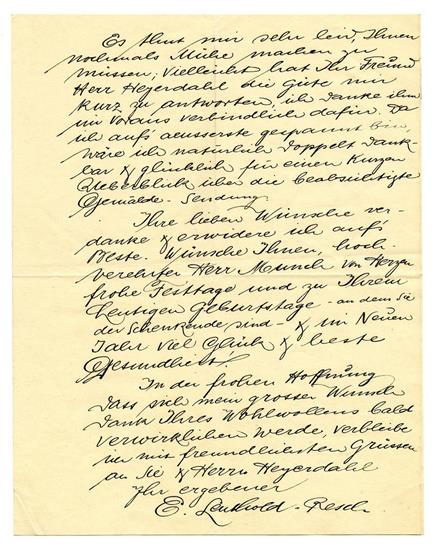 Es thut mir sehr leid, Ihnen
nochmals Mühe machen zu
müssen, vielleicht hat Ihr Freund
Herr Heyerdahl die Güte mir
kurz zu antworten, ich danke ihm
im Voraus verbindlich dafür. Da
ich aufs aeusserste gespannt bin,
wäre ich natürlich doppelt dank-
bar & glücklich für einen kurzen
Ueberblick über die beabsichtigte
Gemälde-Sendung.
Ihre lieben Wünsche ver-
danke & erwidere ich aufs
Beste. Wünsche Ihnen, hoch-
verehrter Herr Munch von Herzen
frohe Festtage und zu Ihrem
heutigen Geburtstage - an dem Sie
der Schenkende sind - & im Neuen
Jahr viel Glück & beste
Gesundheit!
In der frohen Hoffnung
dass sich mein grosser Wunsch
Dank Ihres Wohlwollens bald
verwirklichen werde, verbleibe
ich mit freundlichsten Grüssen
an Sie & Herrn Heyerdahl
Ihr ergebener
E. Leuthold-Resch